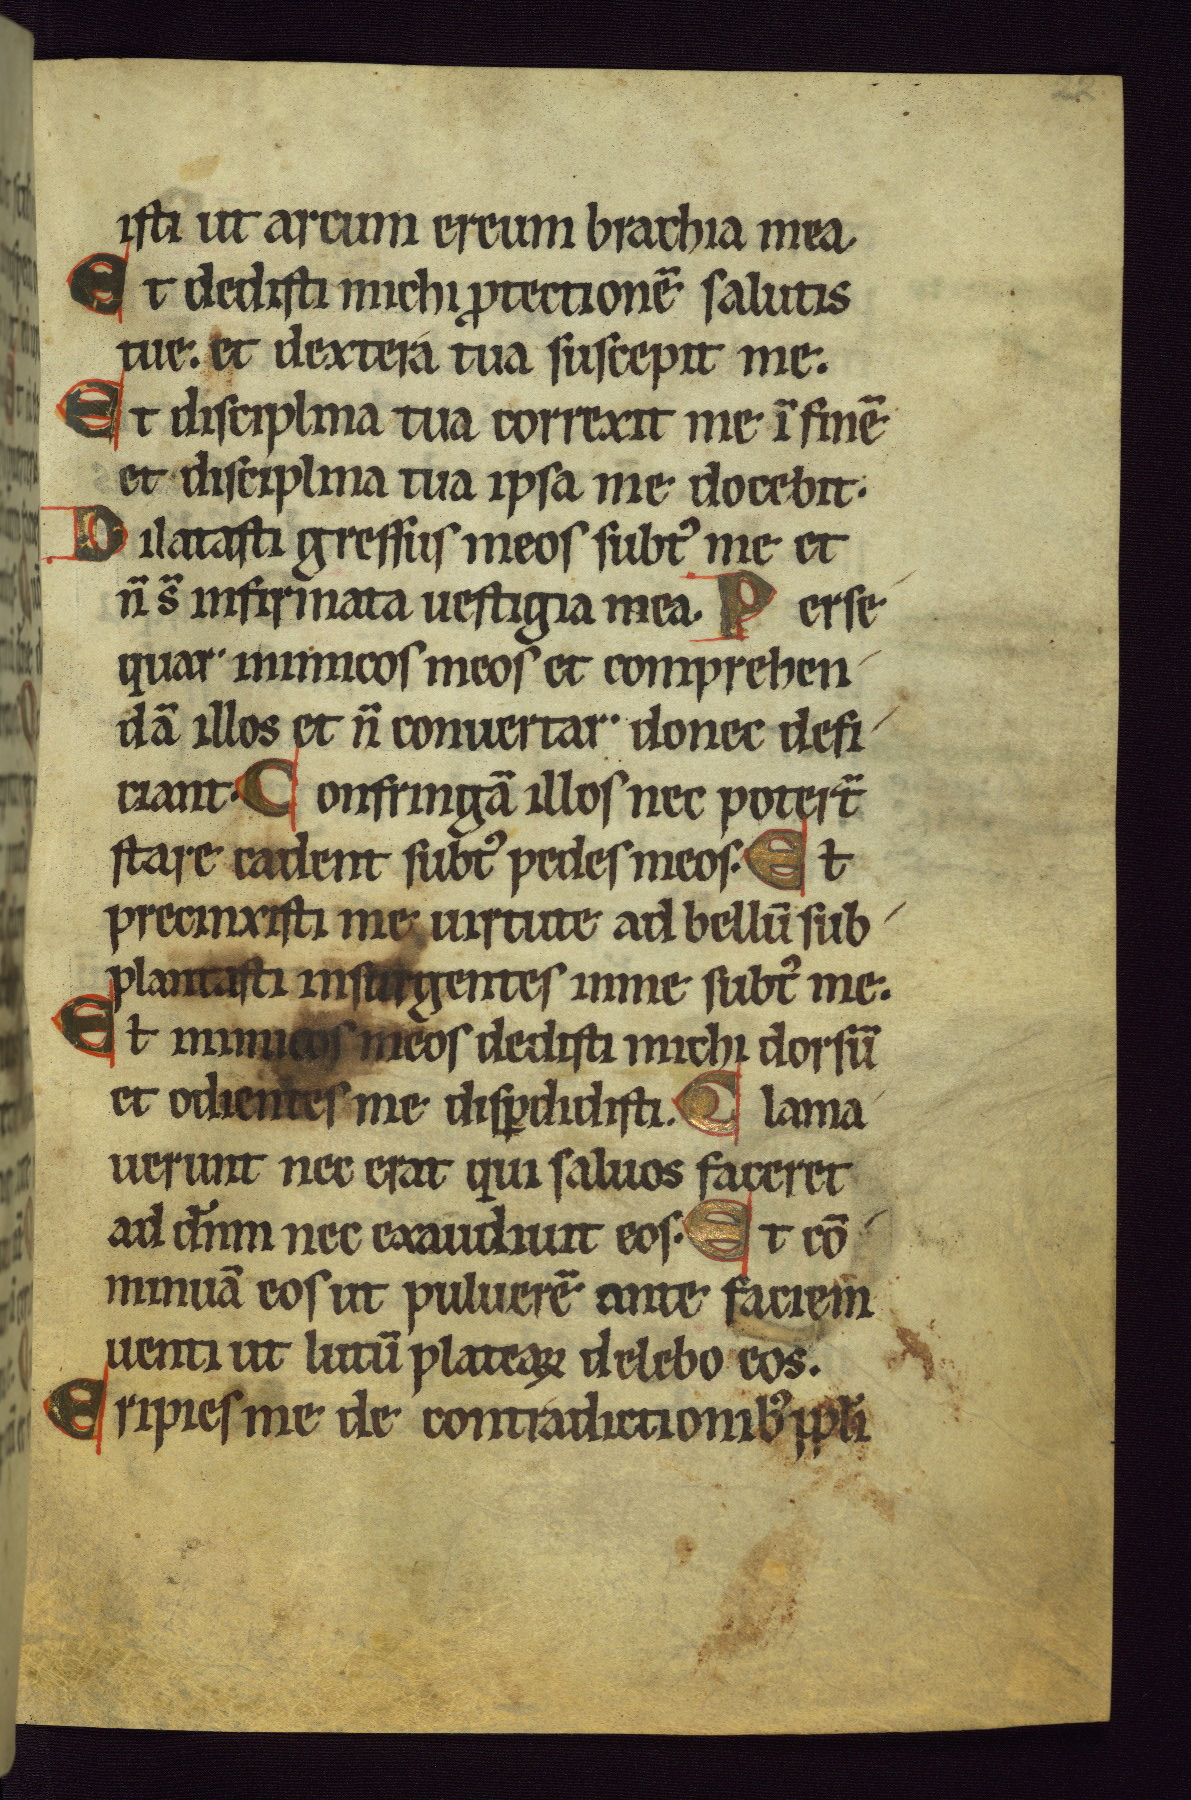 isti ut arcum ereum brachia mea.
Et dedisti michi ꝓtectionē salutis
tue. et dextera tua suscepit me.
Et disciplina tua correxit me ī finē
et disciplina tua ipsa me docebit.
Dilatasti gressus meos subt᷒ me et
n̄ s̄ infirmata uestigia mea. Perse
quar inimicos meos et comprehen
dā illos et n̄ conuertar donec defi
ciant. Confringā illos nec poter̄t
stare cadent subt᷒ pedes meos. Et
precinxisti me uirtute ad bellū sub
plantasti insurgentes inme subt᷒ me.
Et inimicos meos dedisti michi dorsū
et odientes me disꝑdidisti. Clama
uerunt nec erat qui saluos faceret
ad dn̄m nec exaudiuit eos. Et cō
minuā eos ut puluerē ante faciem
uenti ut lutū plateaꝝ delebo eos.
Eripies me de contradictionib᷒ ppl̄i